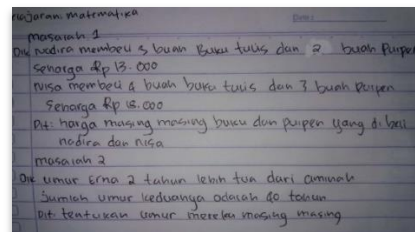 Pelajaran: matematika
masalah 1
Dik nadira membeli 3 buah Buku tulis dan 2 buah Pulpen
seharga Rp 13.000
nisa membeli 4 buah buku tulis dan 3 buah pulpen
Seharga Rp 18.000
Dit: harga masing masing buku dan pulpen yang di beli
nadira dan nisa
masalah 2
Dik umur Erna 2 tahun lebih tua dari aminah
Jumlah umur keduanya adalah 40 tahun
Dit tentukan umur mereka masing masing